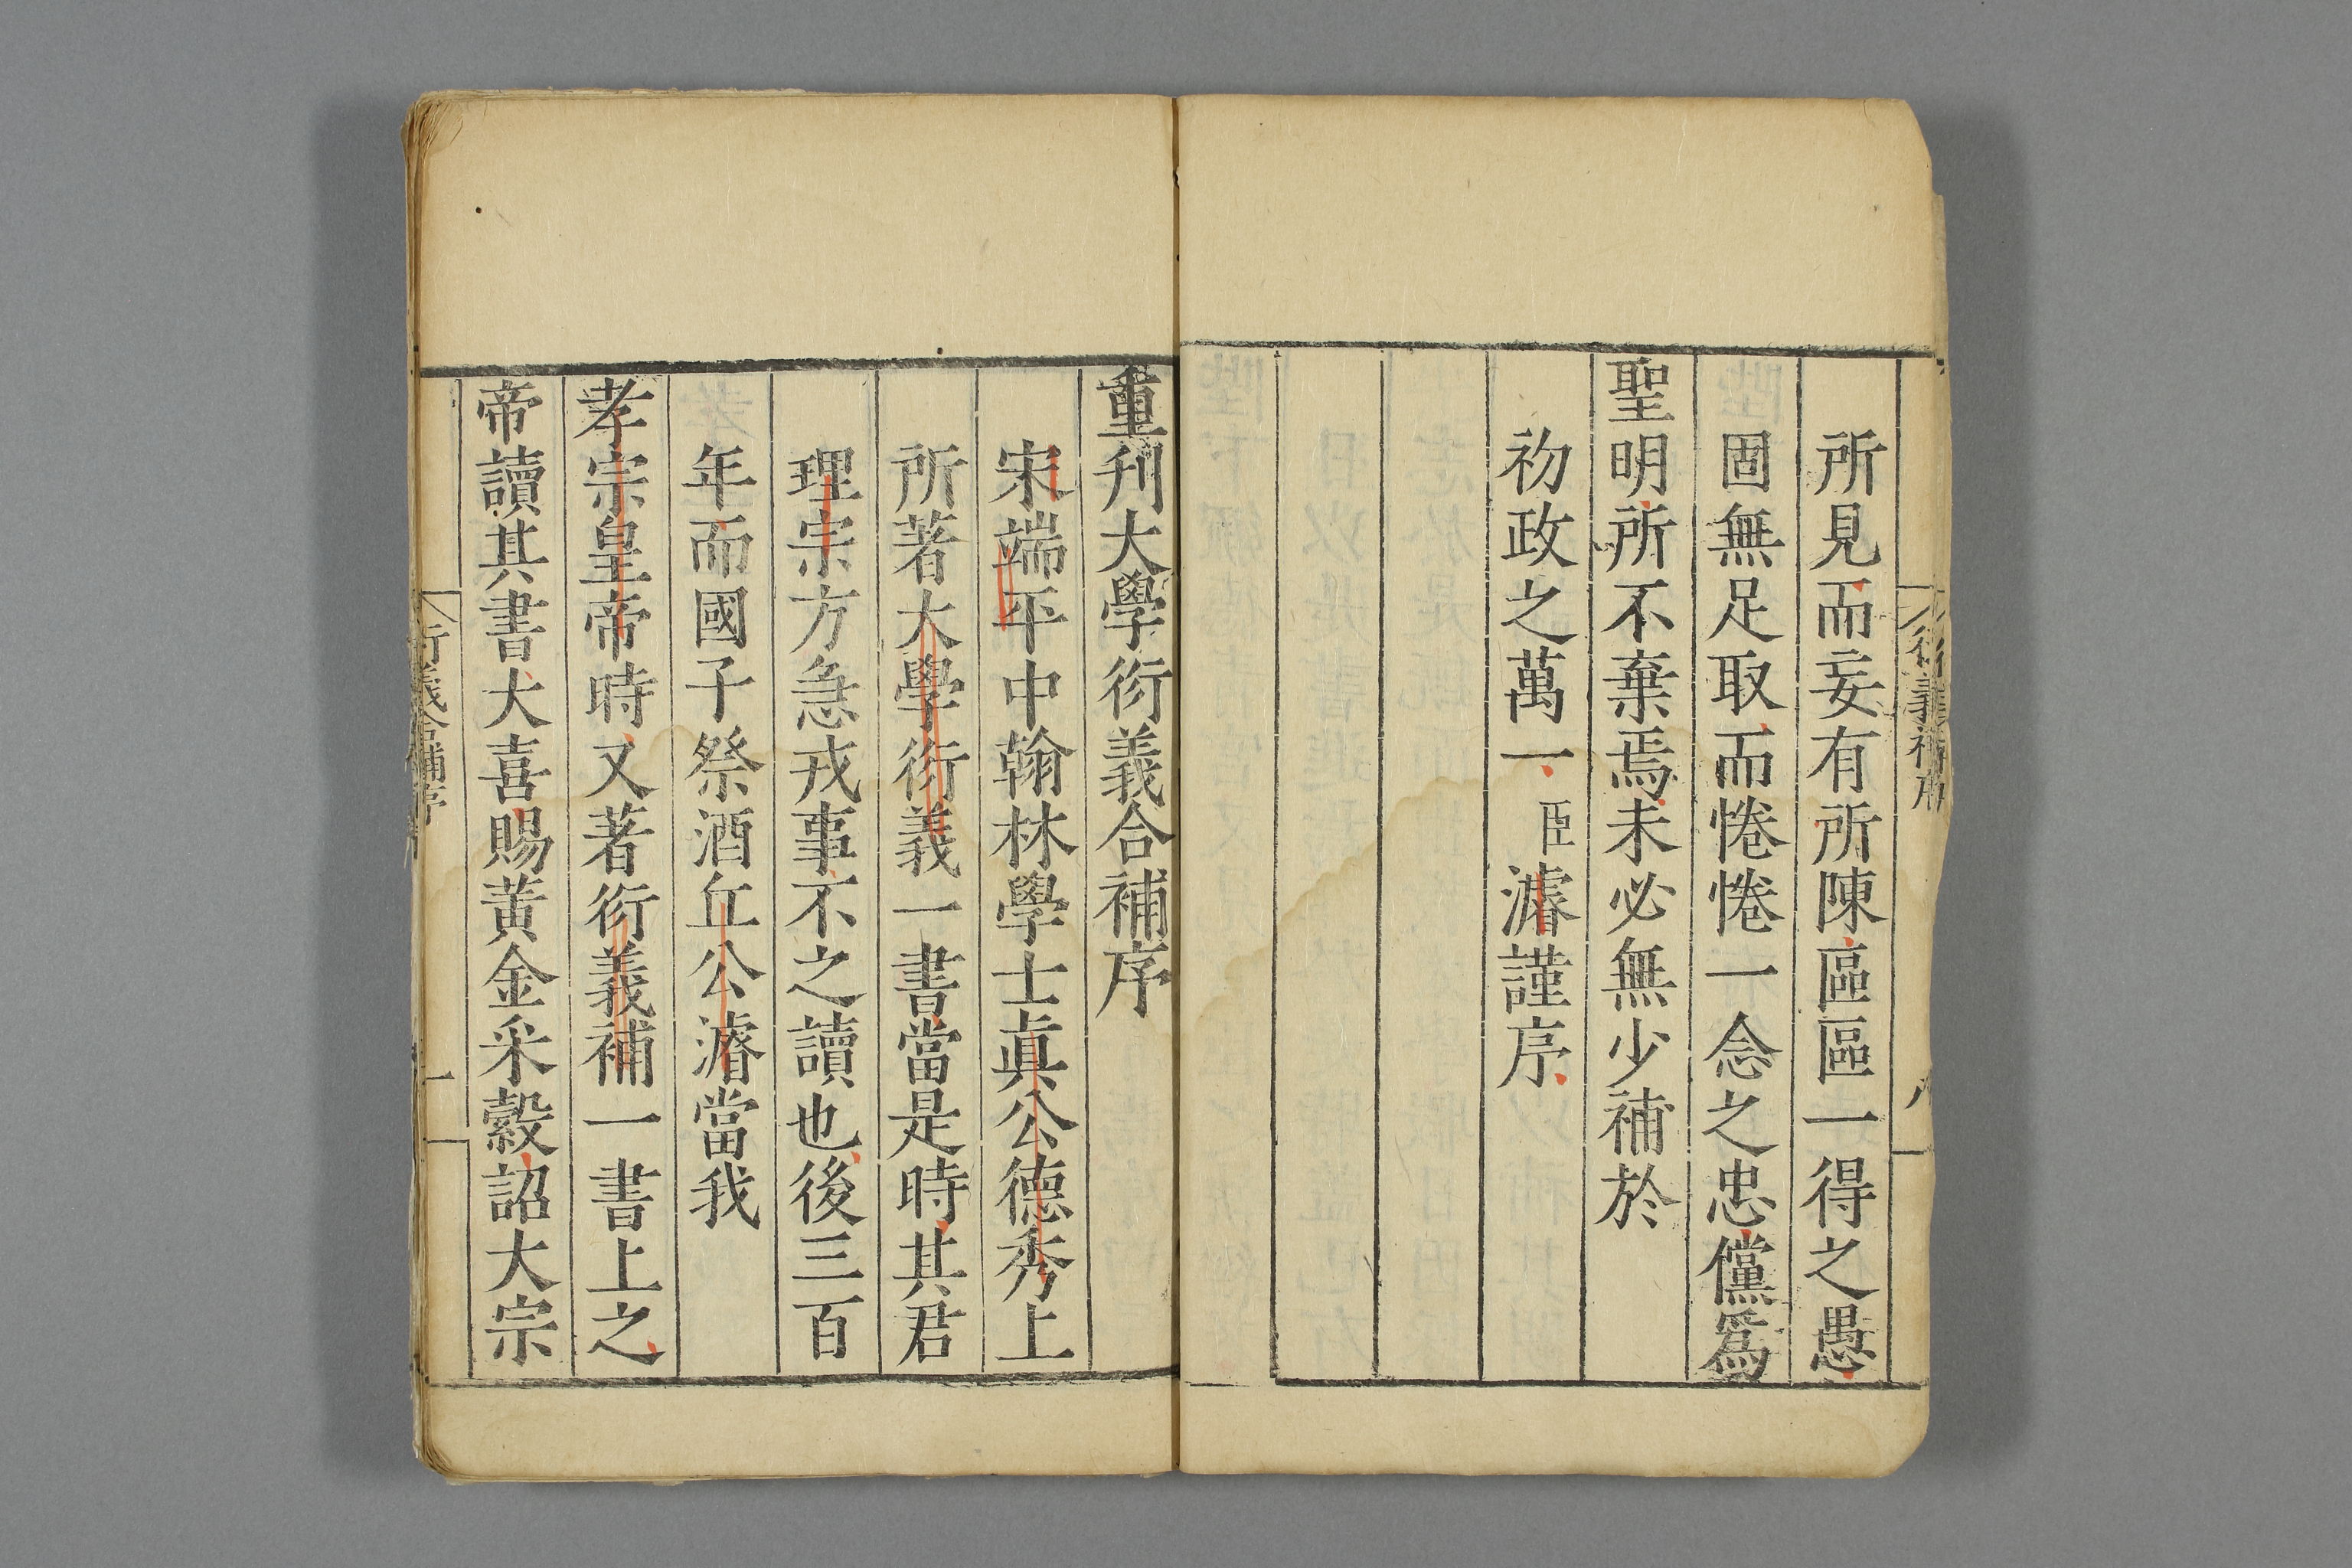 所見而妄有所陳區區一得之愚
固無足取而惓惓一念之忠儻爲
聖明所不棄焉未必無少補於
初政之萬一臣濬謹序
重刋大學衍義合補序
宋端平中翰林學士眞公德秀上
所著大學衍義一書當是時其君
理宗方急戎事不之讀也後三百
年而國子祭酒丘公濬當我
孝宗皇帝時又著衍義補一書上之
帝讀其書大喜賜黃金采縠詔大宗
衍義合補序
一